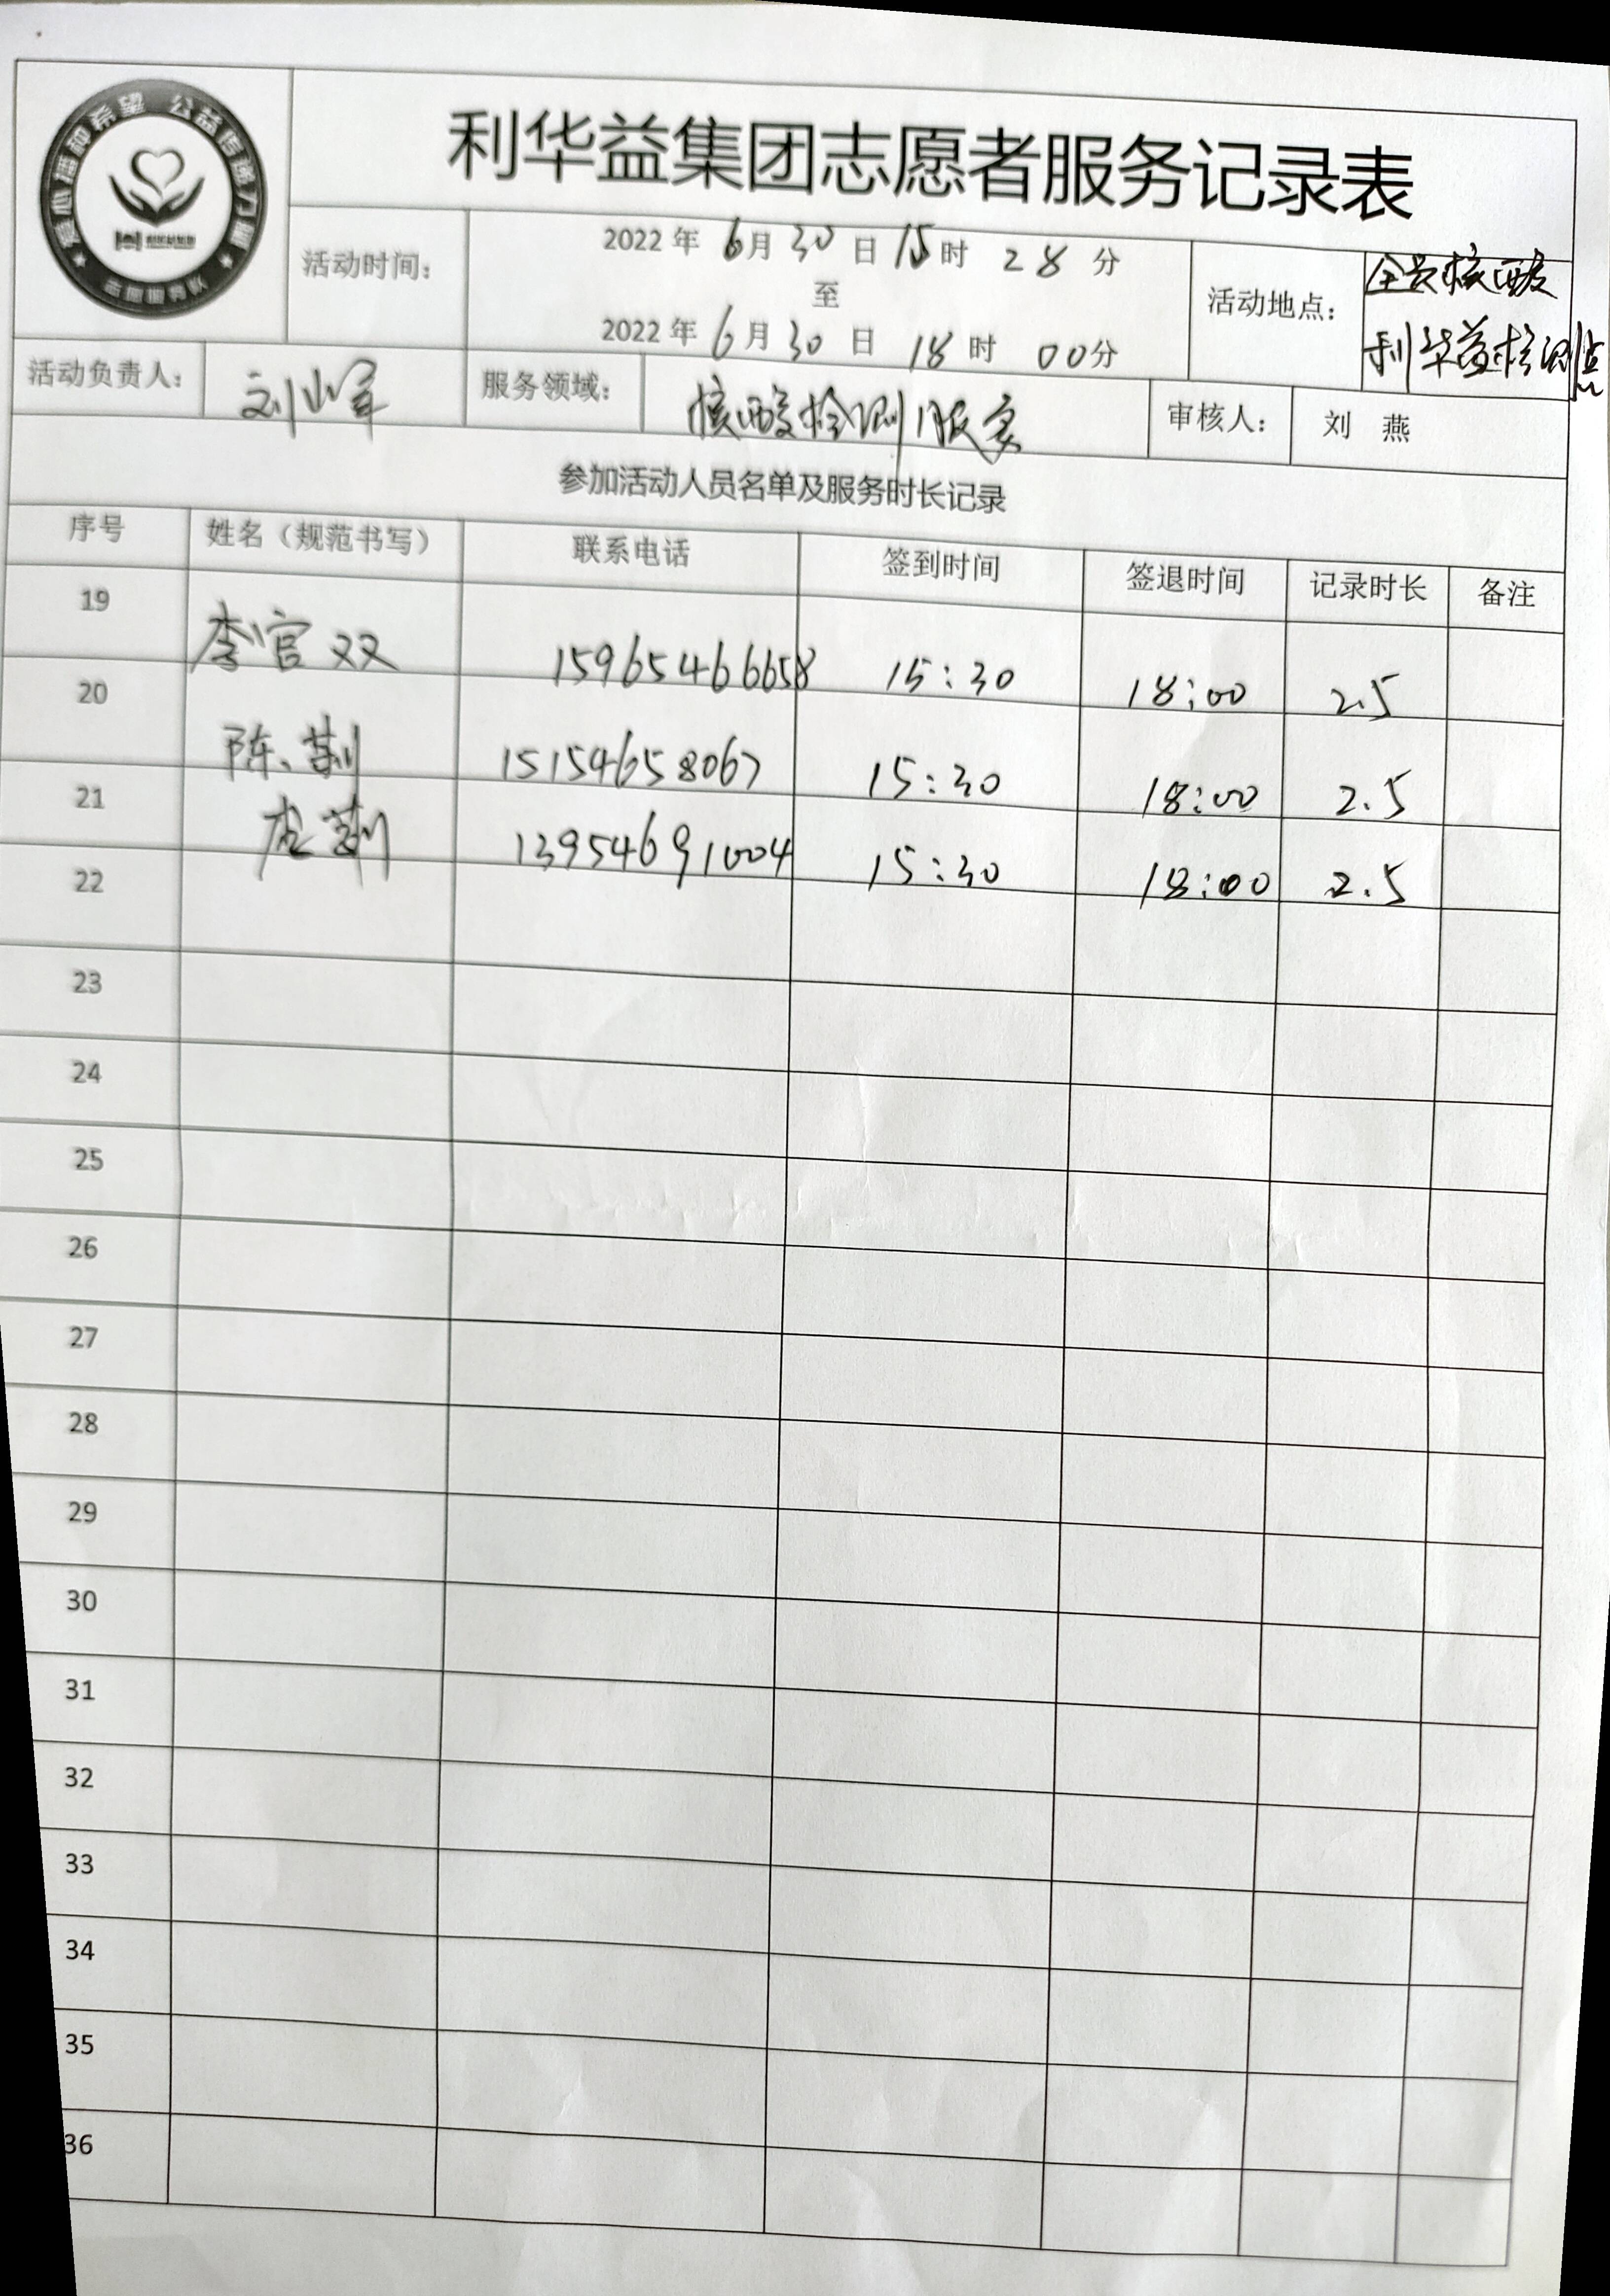 爱心播种希望 公益传递力量
利华益集团志愿者服务记录表
活动时间：
2022年 6月 30日 15时 28分
至
2022年 6月 30日 18时 00分
活动地点：
全员核酸
利华益检测点
活动负责人：
服务领域：
核酸检测服务
审核人：
刘 燕
参加活动人员名单及服务时长记录
序号 姓名（规范书写） 联系电话 签到时间 签退时间 记录时长 备注
19 李官双 15965466658 15:30 18:00 2.5
20 陈 15154658067 15:30 18:00 2.5
21 13954691004 15:30 18:00 2.5
22
23
24
25
26
27
28
29
30
31
32
33
34
35
36